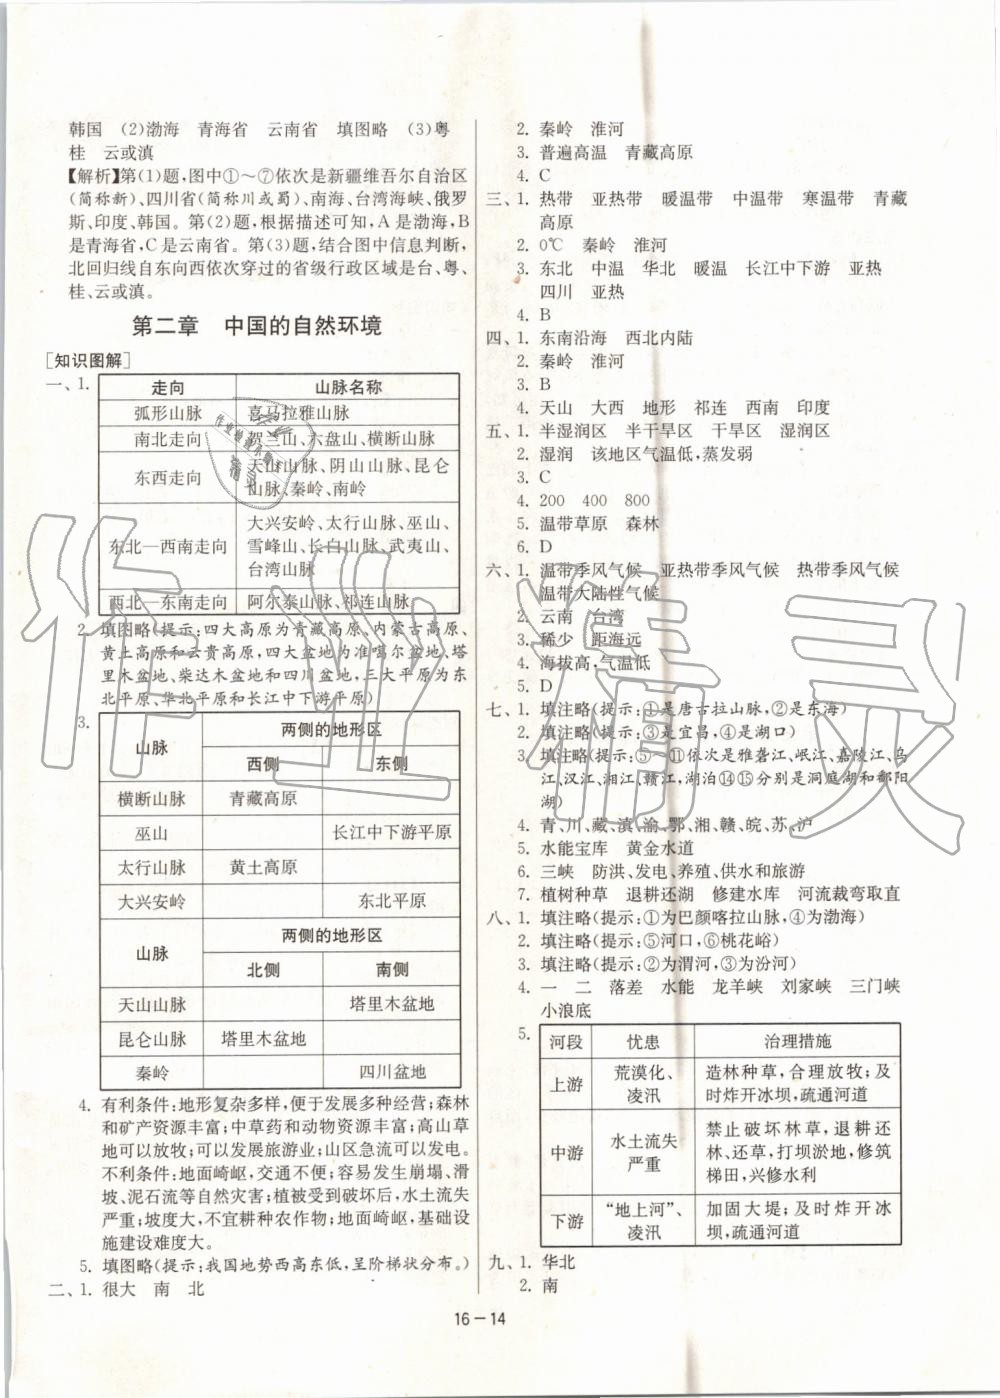 韩国 (2)渤海 青海省 云南省 填图略 (3)粤
桂 云或滇
【解析】第(1)题,图中①～⑦依次是新疆维吾尔自治区
(简称新)、四川省(简称川或蜀)、南海、台湾海峡、俄罗
斯、印度、韩国。第(2)题,根据描述可知,A是渤海,B
是青海省,C是云南省。第(3)题,结合图中信息判断,
北回归线自东向西依次穿过的省级行政区域是台、粤、
桂、云或滇。
第二章 中国的自然环境
[知识图解]
一、1.
走向 山脉名称
弧形山脉 喜马拉雅山脉
南北走向 贺兰山、六盘山、横断山脉
东西走向 天山山脉、阴山山脉、昆仑
山脉、秦岭、南岭
东北—西南走向 大兴安岭、太行山脉、巫山、
雪峰山、长白山脉、武夷山、
台湾山脉
西北—东南走向 阿尔泰山脉、祁连山脉
2. 填图略(提示:四大高原为青藏高原、内蒙古高原、
黄土高原和云贵高原,四大盆地为准噶尔盆地、塔
里木盆地、柴达木盆地和四川盆地,三大平原为东
北平原、华北平原和长江中下游平原)
3.
山脉 两侧的地形区
西侧 东侧
横断山脉 青藏高原
巫山 长江中下游平原
太行山脉 黄土高原
大兴安岭 东北平原
山脉 两侧的地形区
北侧 南侧
天山山脉 塔里木盆地
昆仑山脉 塔里木盆地
秦岭 四川盆地
4. 有利条件:地形复杂多样,便于发展多种经营;森林
和矿产资源丰富;中草药和动物资源丰富;高山草
地可以放牧;可以发展旅游业;山区急流可以发电。
不利条件:地面崎岖,交通不便;容易发生崩塌、滑
坡、泥石流等自然灾害;植被受到破坏后,水土流失
严重;坡度大,不宜耕种农作物;地面崎岖,基础设
施建设难度大。
5. 填图略(提示:我国地势西高东低,呈阶梯状分布。)
二、1. 很大 南 北
2. 秦岭 淮河
3. 普遍高温 青藏高原
4. C
三、1. 热带 亚热带 暖温带 中温带 寒温带 青藏
高原
2. 0℃ 秦岭 淮河
3. 东北 中温 华北 暖温 长江中下游 亚热
四川 亚热
4. B
四、1. 东南沿海 西北内陆
2. 秦岭 淮河
3. B
4. 天山 大西 地形 祁连 西南 印度
五、1. 半湿润区 半干旱区 干旱区 湿润区
2. 湿润 该地区气温低,蒸发弱
3. C
4. 200 400 800
5. 温带草原 森林
6. D
六、1. 温带季风气候 亚热带季风气候 热带季风气候
温带大陆性气候
2. 云南 台湾
3. 稀少 距海远
4. 海拔高,气温低
5. D
七、1. 填注略(提示:①是唐古拉山脉,②是东海)
2. 填注略(提示:③是宜昌,④是湖口)
3. 填注略(提示:⑤～⑪依次是雅砻江、岷江、嘉陵江、乌
江、汉江、湘江、赣江,湖泊⑭⑮分别是洞庭湖和鄱阳
湖)
4. 青、川、藏、滇、渝、鄂、湘、赣、皖、苏、沪
5. 水能宝库 黄金水道
6. 三峡 防洪、发电、养殖、供水和旅游
7. 植树种草 退耕还湖 修建水库 河流裁弯取直
八、1. 填注略(提示:①为巴颜喀拉山脉,④为渤海)
2. 填注略(提示:⑤河口,⑥桃花峪)
3. 填注略(提示:②为渭河,③为汾河)
4. 一 二 落差 水能 龙羊峡 刘家峡 三门峡
小浪底
5.
河段 忧患 治理措施
上游 荒漠化、
凌汛 造林种草,合理放牧;及
时炸开冰坝,疏通河道
中游 水土流失
严重 禁止破坏林草,退耕还
林、还草,打坝淤地,修筑
梯田,兴修水利
下游 “地上河”、
凌汛 加固大堤;及时炸开冰
坝,疏通河道
九、1. 华北
2. 南
16－14
作业精灵